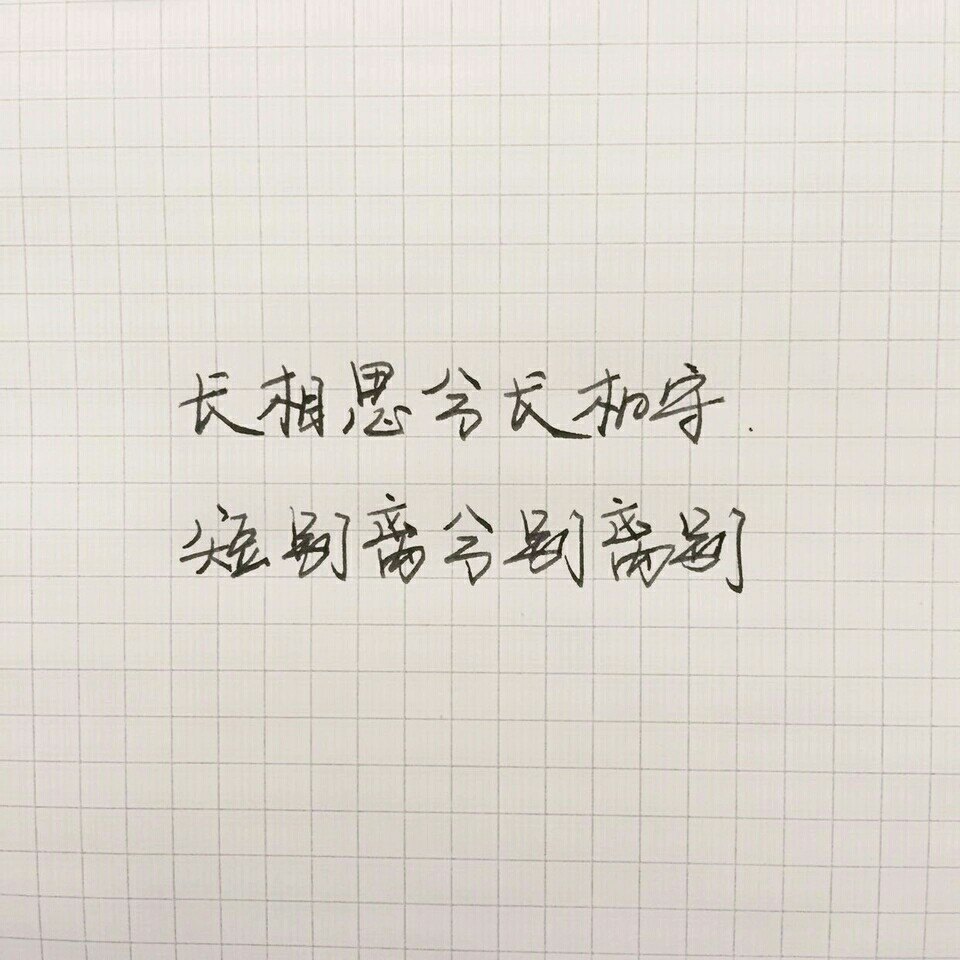 长相思兮长相守.
短别离兮别离别